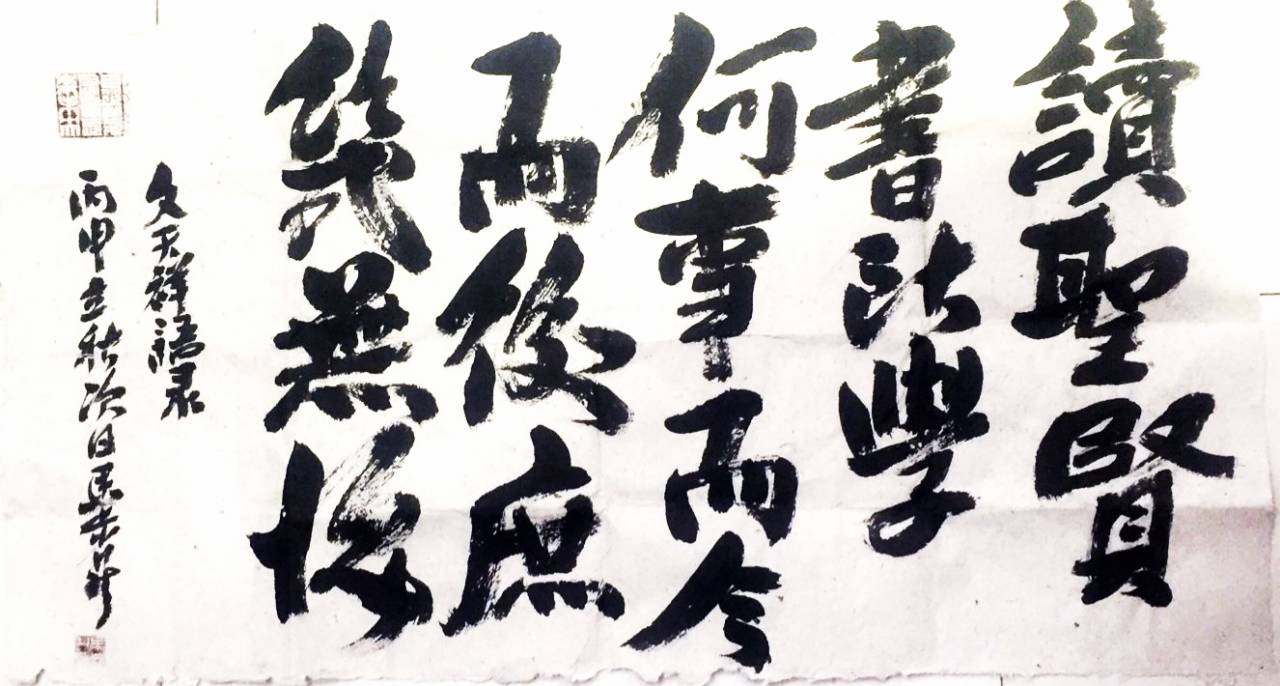 讀聖賢
書所學
何事而今
而後庶
幾無愧
文天祥語录
丙申立秋次日